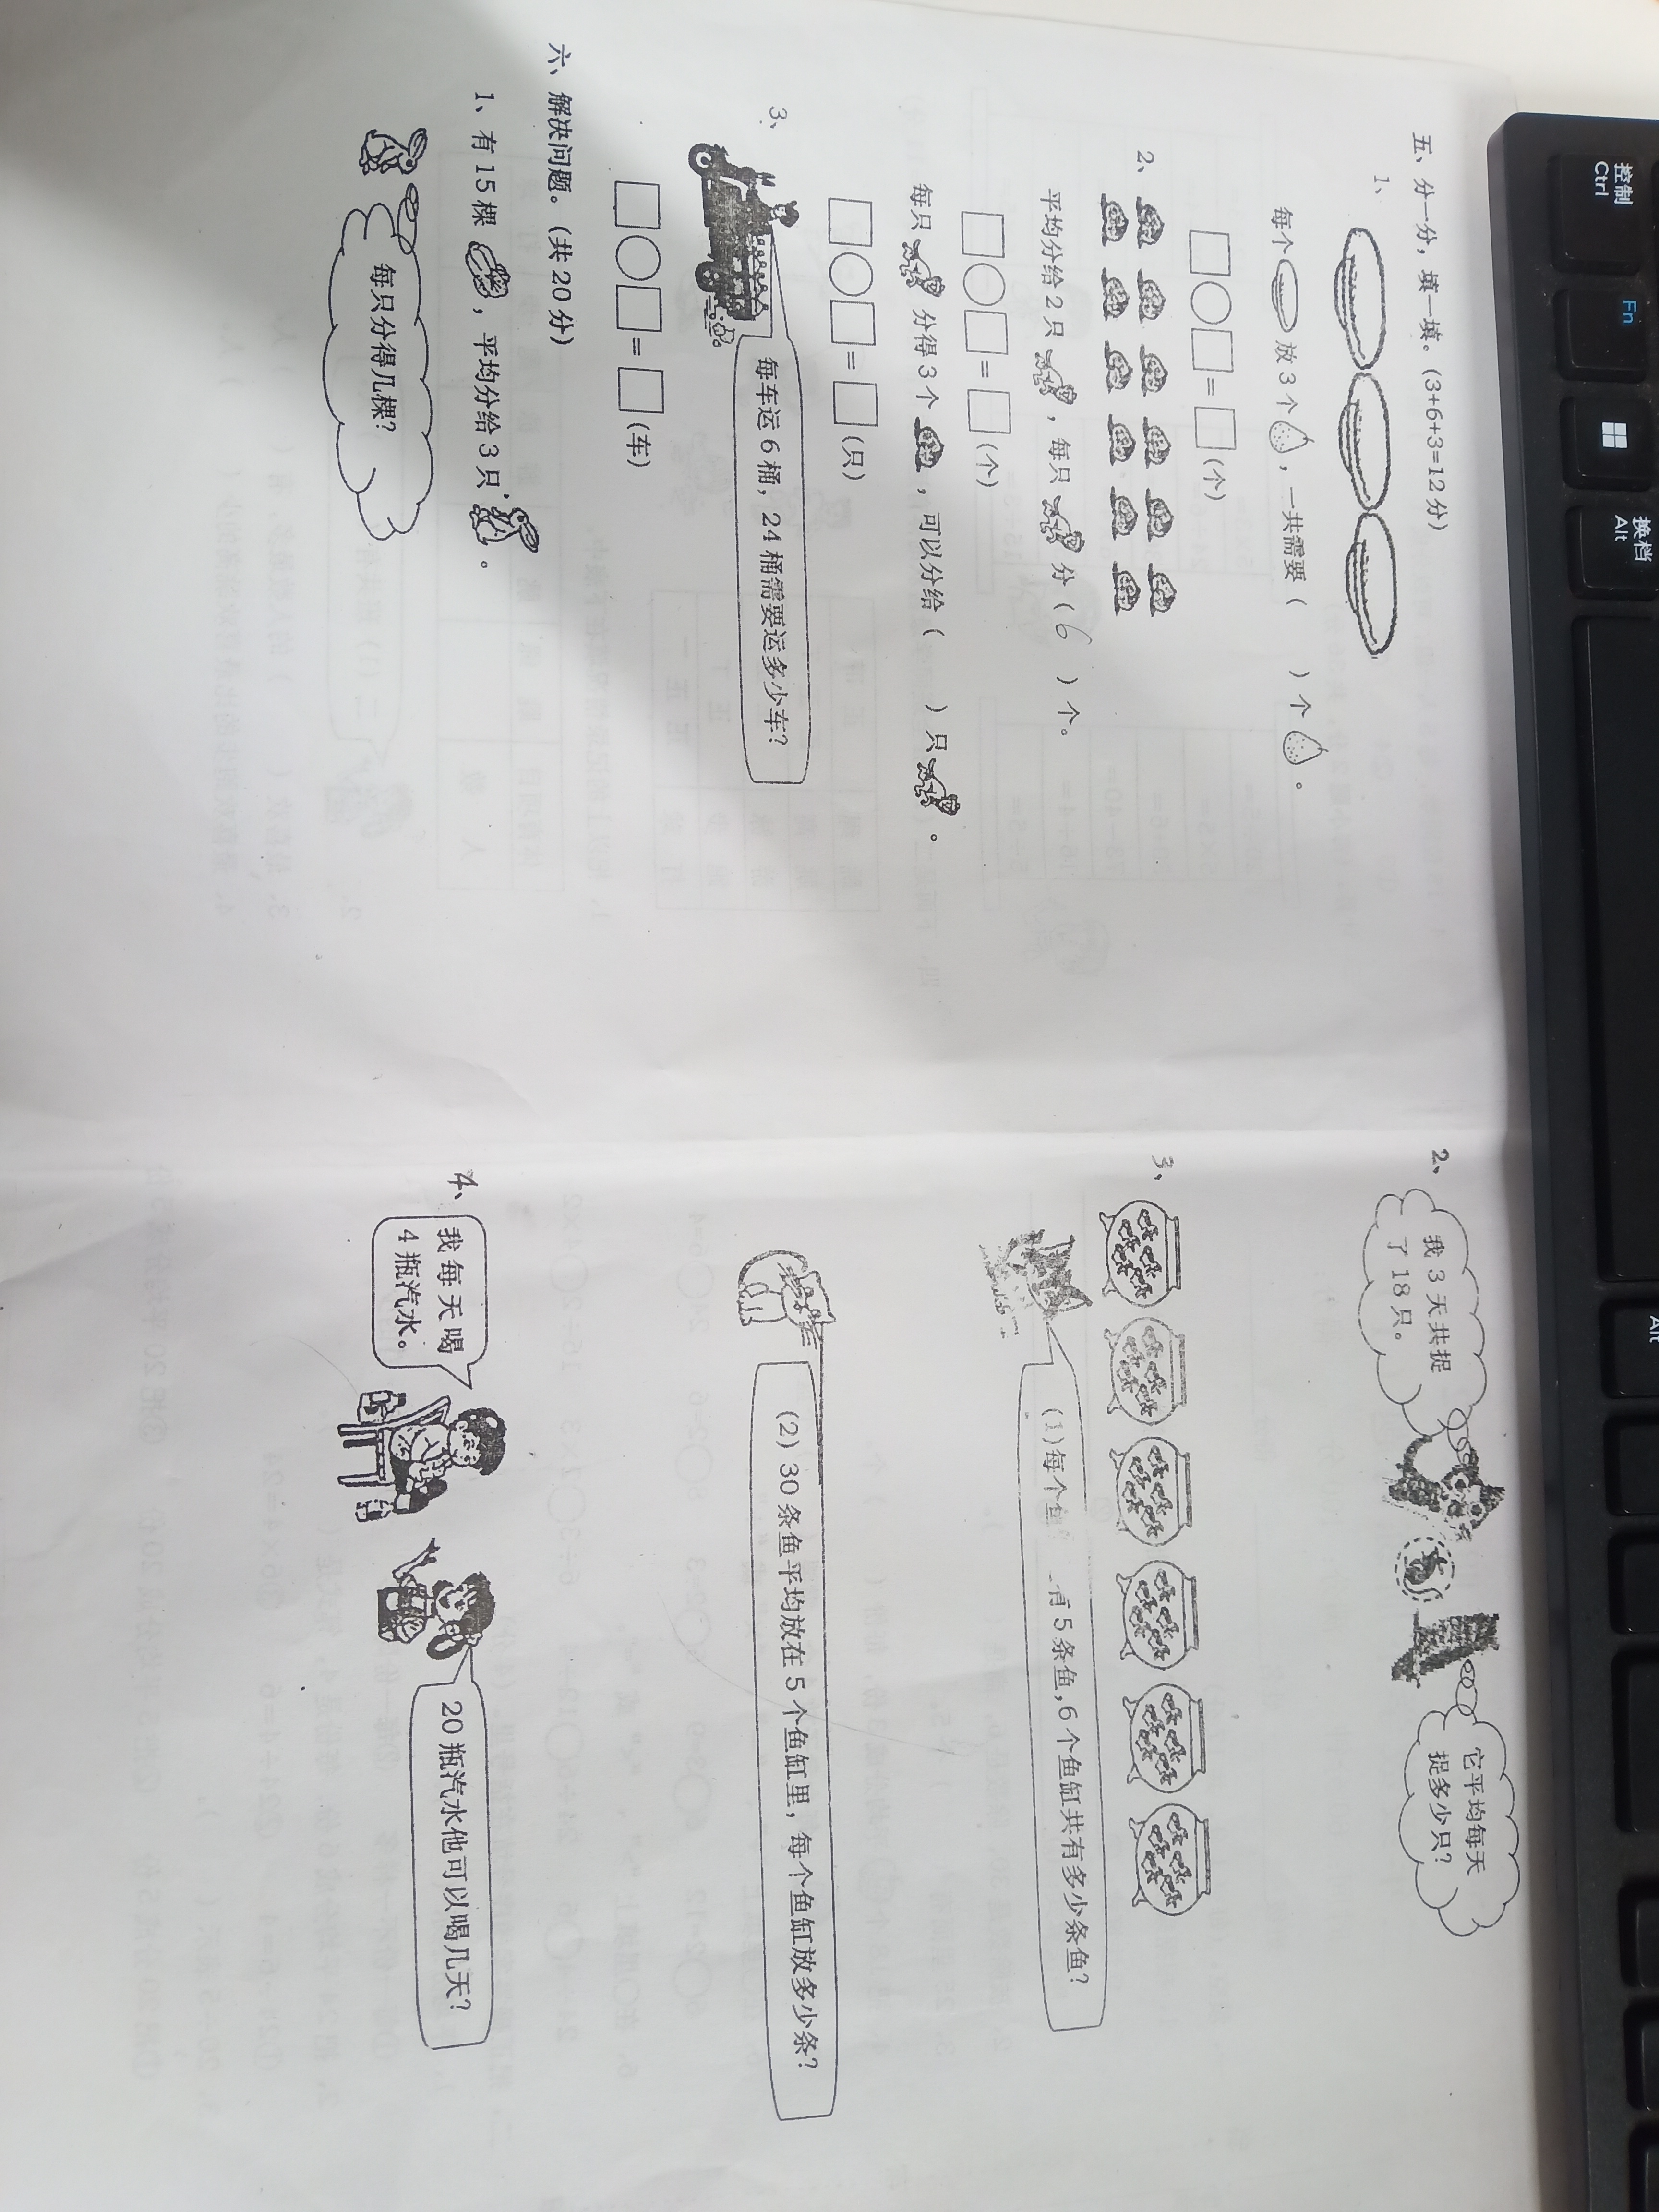 五、分一分，填一填。(3+6+3=12分)
1、
每个 放3个 ，一共需要( )个 。
□○□=□(个)
2、
平均分给2只 ，每只 分(6)个。
□○□=□(个)
每只 分得3个 ，可以分给( )只 。
□○□=□(只)
3、
每车运6桶，24桶需要运多少车？
□○□=□(车)
六、解决问题。(共20分)
1、有15棵 ，平均分给3只 。
每只分得几棵？
2、
我3天共捉
了18只。
它平均每天
捉多少只？
3、
(1)每个鱼 有5条鱼,6个鱼缸共有多少条鱼？
(2)30条鱼平均放在5个鱼缸里，每个鱼缸放多少条？
4、
我每天喝
4瓶汽水。
20瓶汽水他可以喝几天？
控制
Ctrl
Fn
换档
Alt
Alt